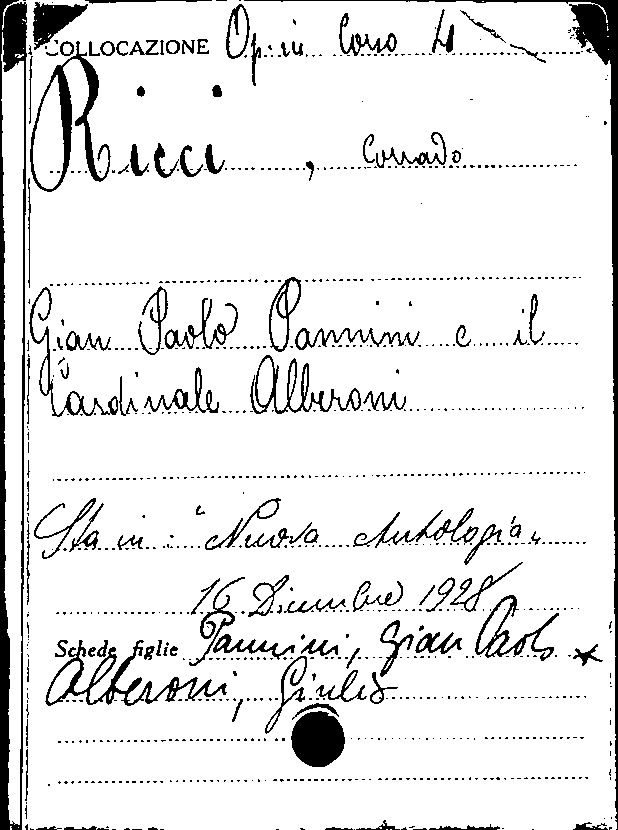 COLLOCAZIONE Op. in Corso
Ricci, Corrado
Gian Paolo Pannini e il
Cardinale Alberoni
Sta in: "Nuova Antologia"
16 Dicembre 1928
Schede figlie Pannini, Gian Paolo *
Alberoni, Giulio